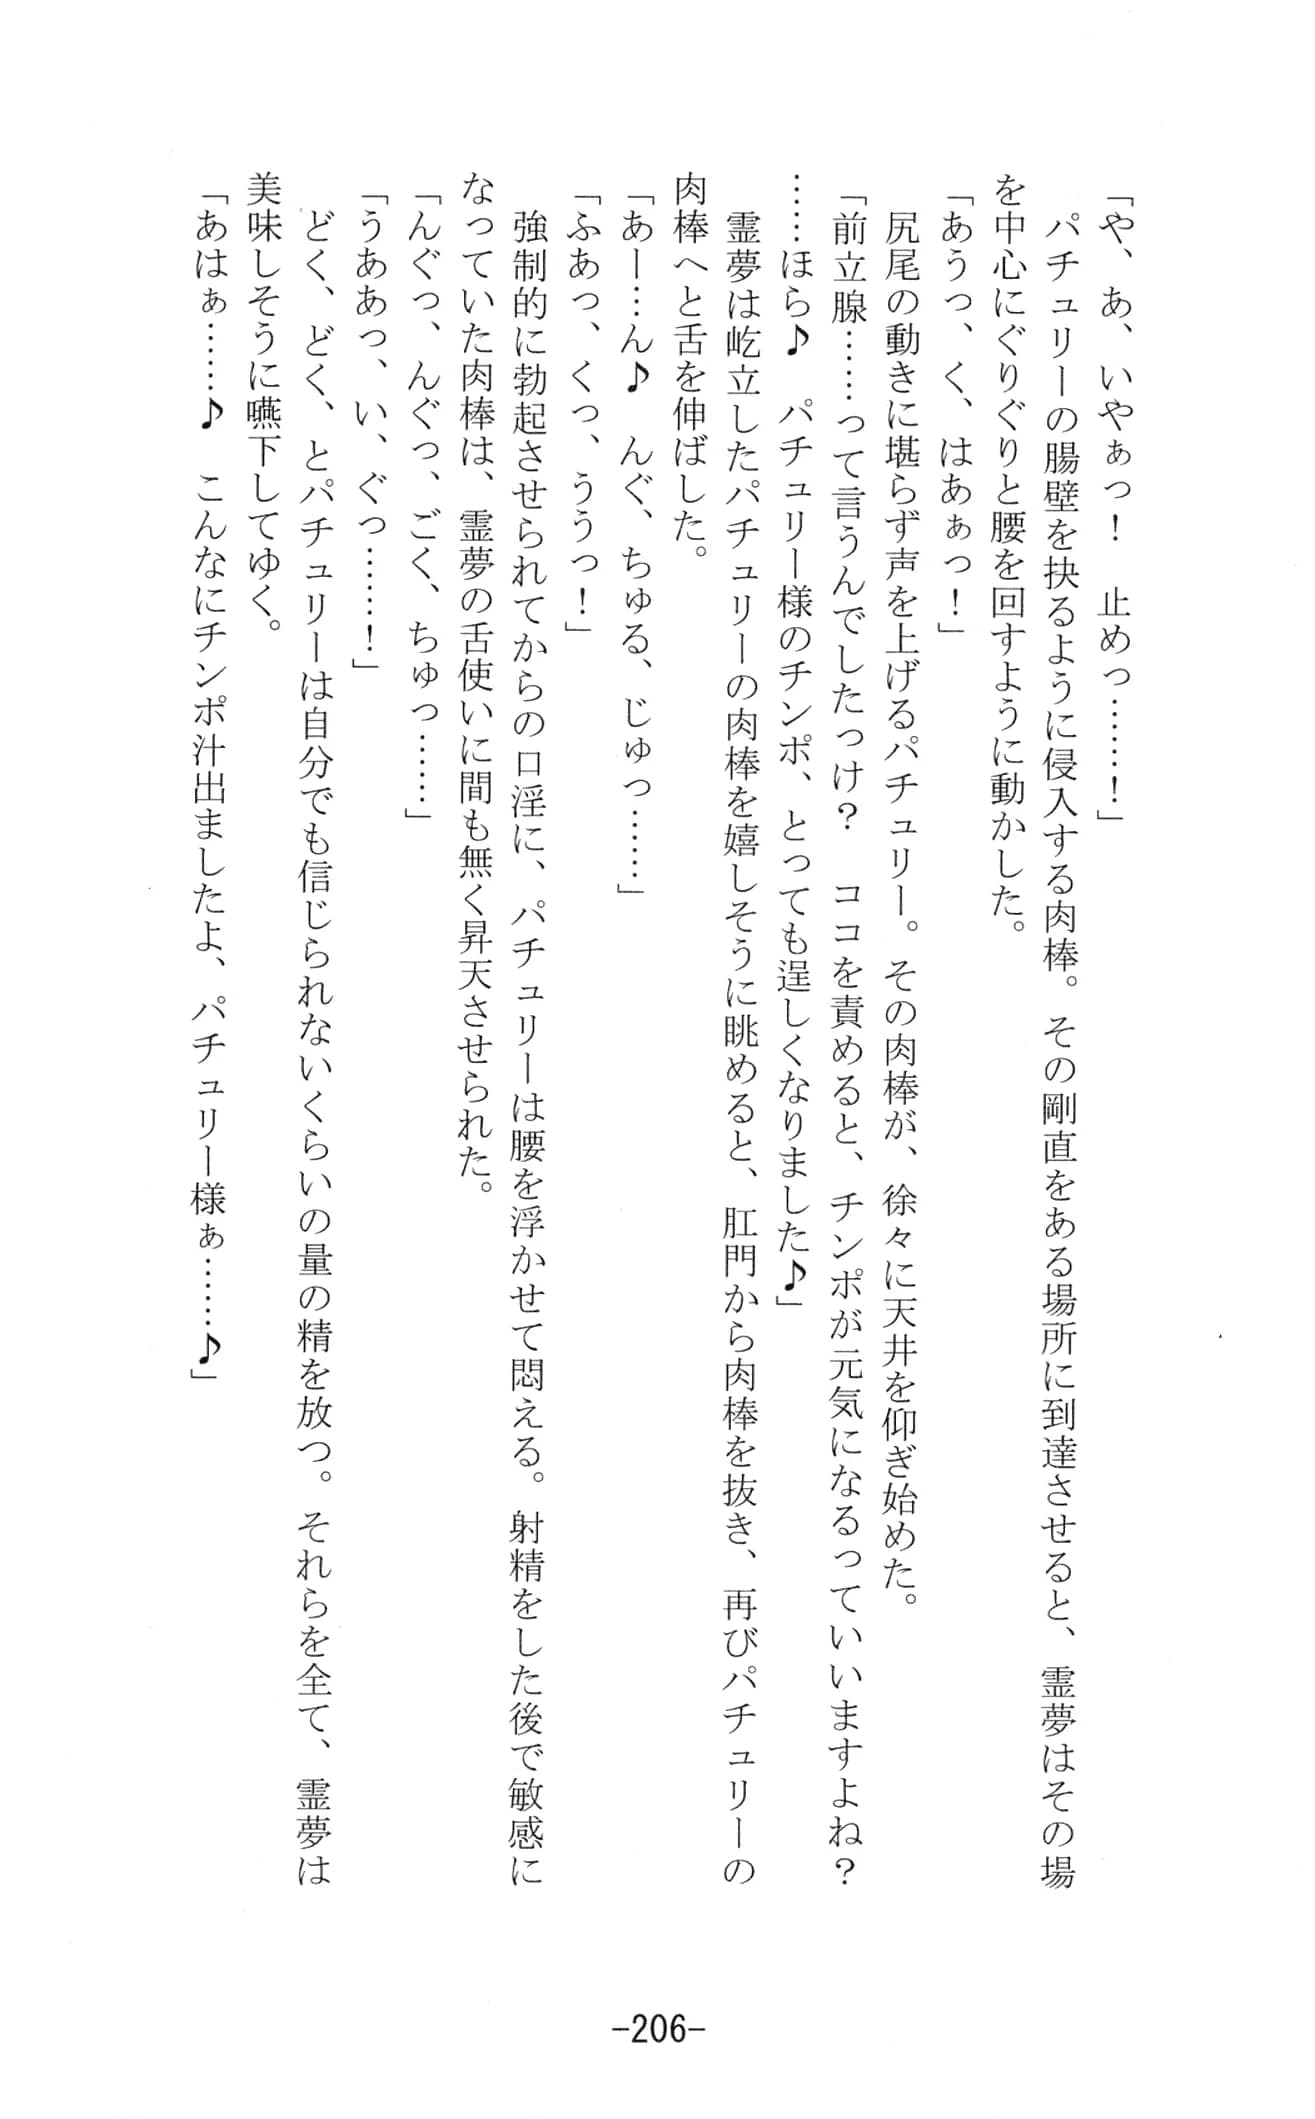 「や、あ、いやぁっ！　止めっ……！」
　パチュリーの腸壁を抉るように侵入する肉棒。その剛直をある場所に到達させると、霊夢はその場
を中心にぐりぐりと腰を回すように動かした。
「あうっ、く、はあぁっ！」
　尻尾の動きに堪らず声を上げるパチュリー。その肉棒が、徐々に天井を仰ぎ始めた。
「前立腺……って言うんでしたっけ？　ココを責めると、チンポが元気になるっていいますよね？
……ほら♪　パチュリー様のチンポ、とっても逞しくなりました♪」
　霊夢は屹立したパチュリーの肉棒を嬉しそうに眺めると、肛門から肉棒を抜き、再びパチュリーの
肉棒へと舌を伸ばした。
「あー…ん♪　んぐ、ちゅる、じゅっ……」
「ふあっ、くっ、ううっ！」
　強制的に勃起させられてからの口淫に、パチュリーは腰を浮かせて悶える。射精をした後で敏感に
なっていた肉棒は、霊夢の舌使いに間も無く昇天させられた。
「んぐっ、んぐっ、ごく、ちゅっ……」
「うああっ、い、ぐっ……！」
　どく、どく、とパチュリーは自分でも信じられないくらいの量の精を放つ。それらを全て、霊夢は
美味しそうに嚥下してゆく。
「あはぁ……♪　こんなにチンポ汁出ましたよ、パチュリー様ぁ……♪」
-206-